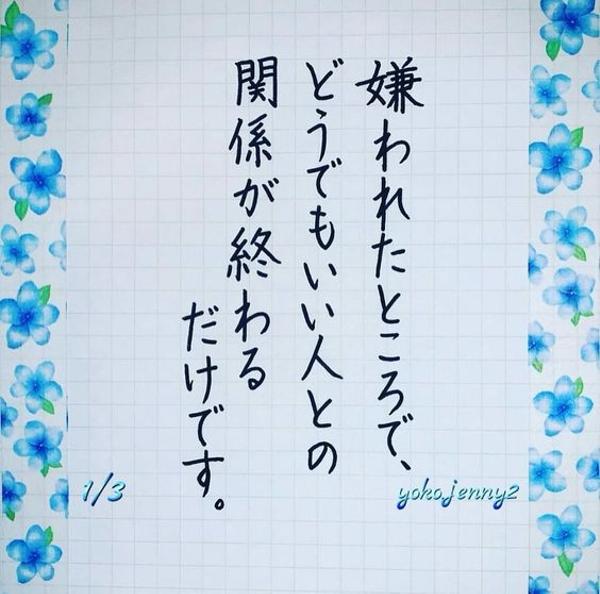 嫌われたところで、
どうでもいい人との
関係が終わる
だけです。
1/3
yokojenny2